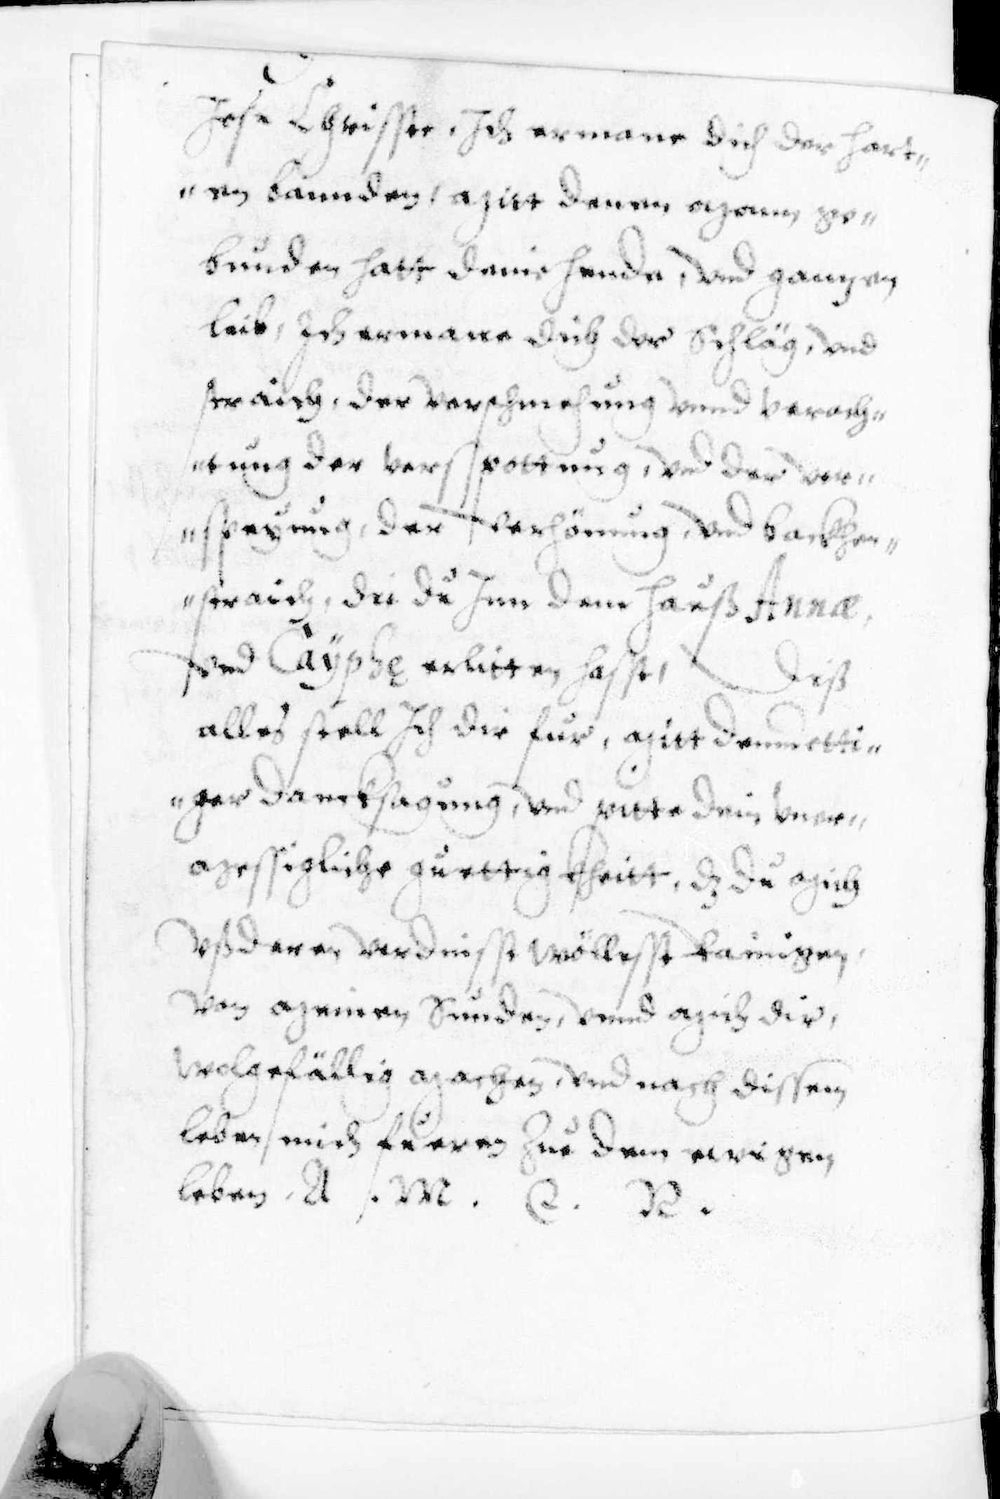 Jesu Christe, Ich ermane dich der hart-
-en bannden, mitt denen mann ge-
bunden hatt deine hende, vnd gantzen
leib, Ich ermane dich der Schläg, vnd
straich, der verschmehung vnnd verach-
-tung der versspottung, vnd der ver-
-speyung, der verhönung, vnd backhen-
-straich, die du Inn dem hauß Annæ,
vnd Cayphę erlitten hasst, Diß
alles stell Ich dir fur, mitt demietti-
-ger dancksagung, vnd pitte dein vner-
messigliche guettigkheitt, dz du mich
vß deren verdinsst wöllesst rainigen,
von meinen Sunden, vnnd mich dir,
wolgefällig machen, vnd nach dissem
leben mich fueren zue dem ewigen
leben. A. M. E. N.